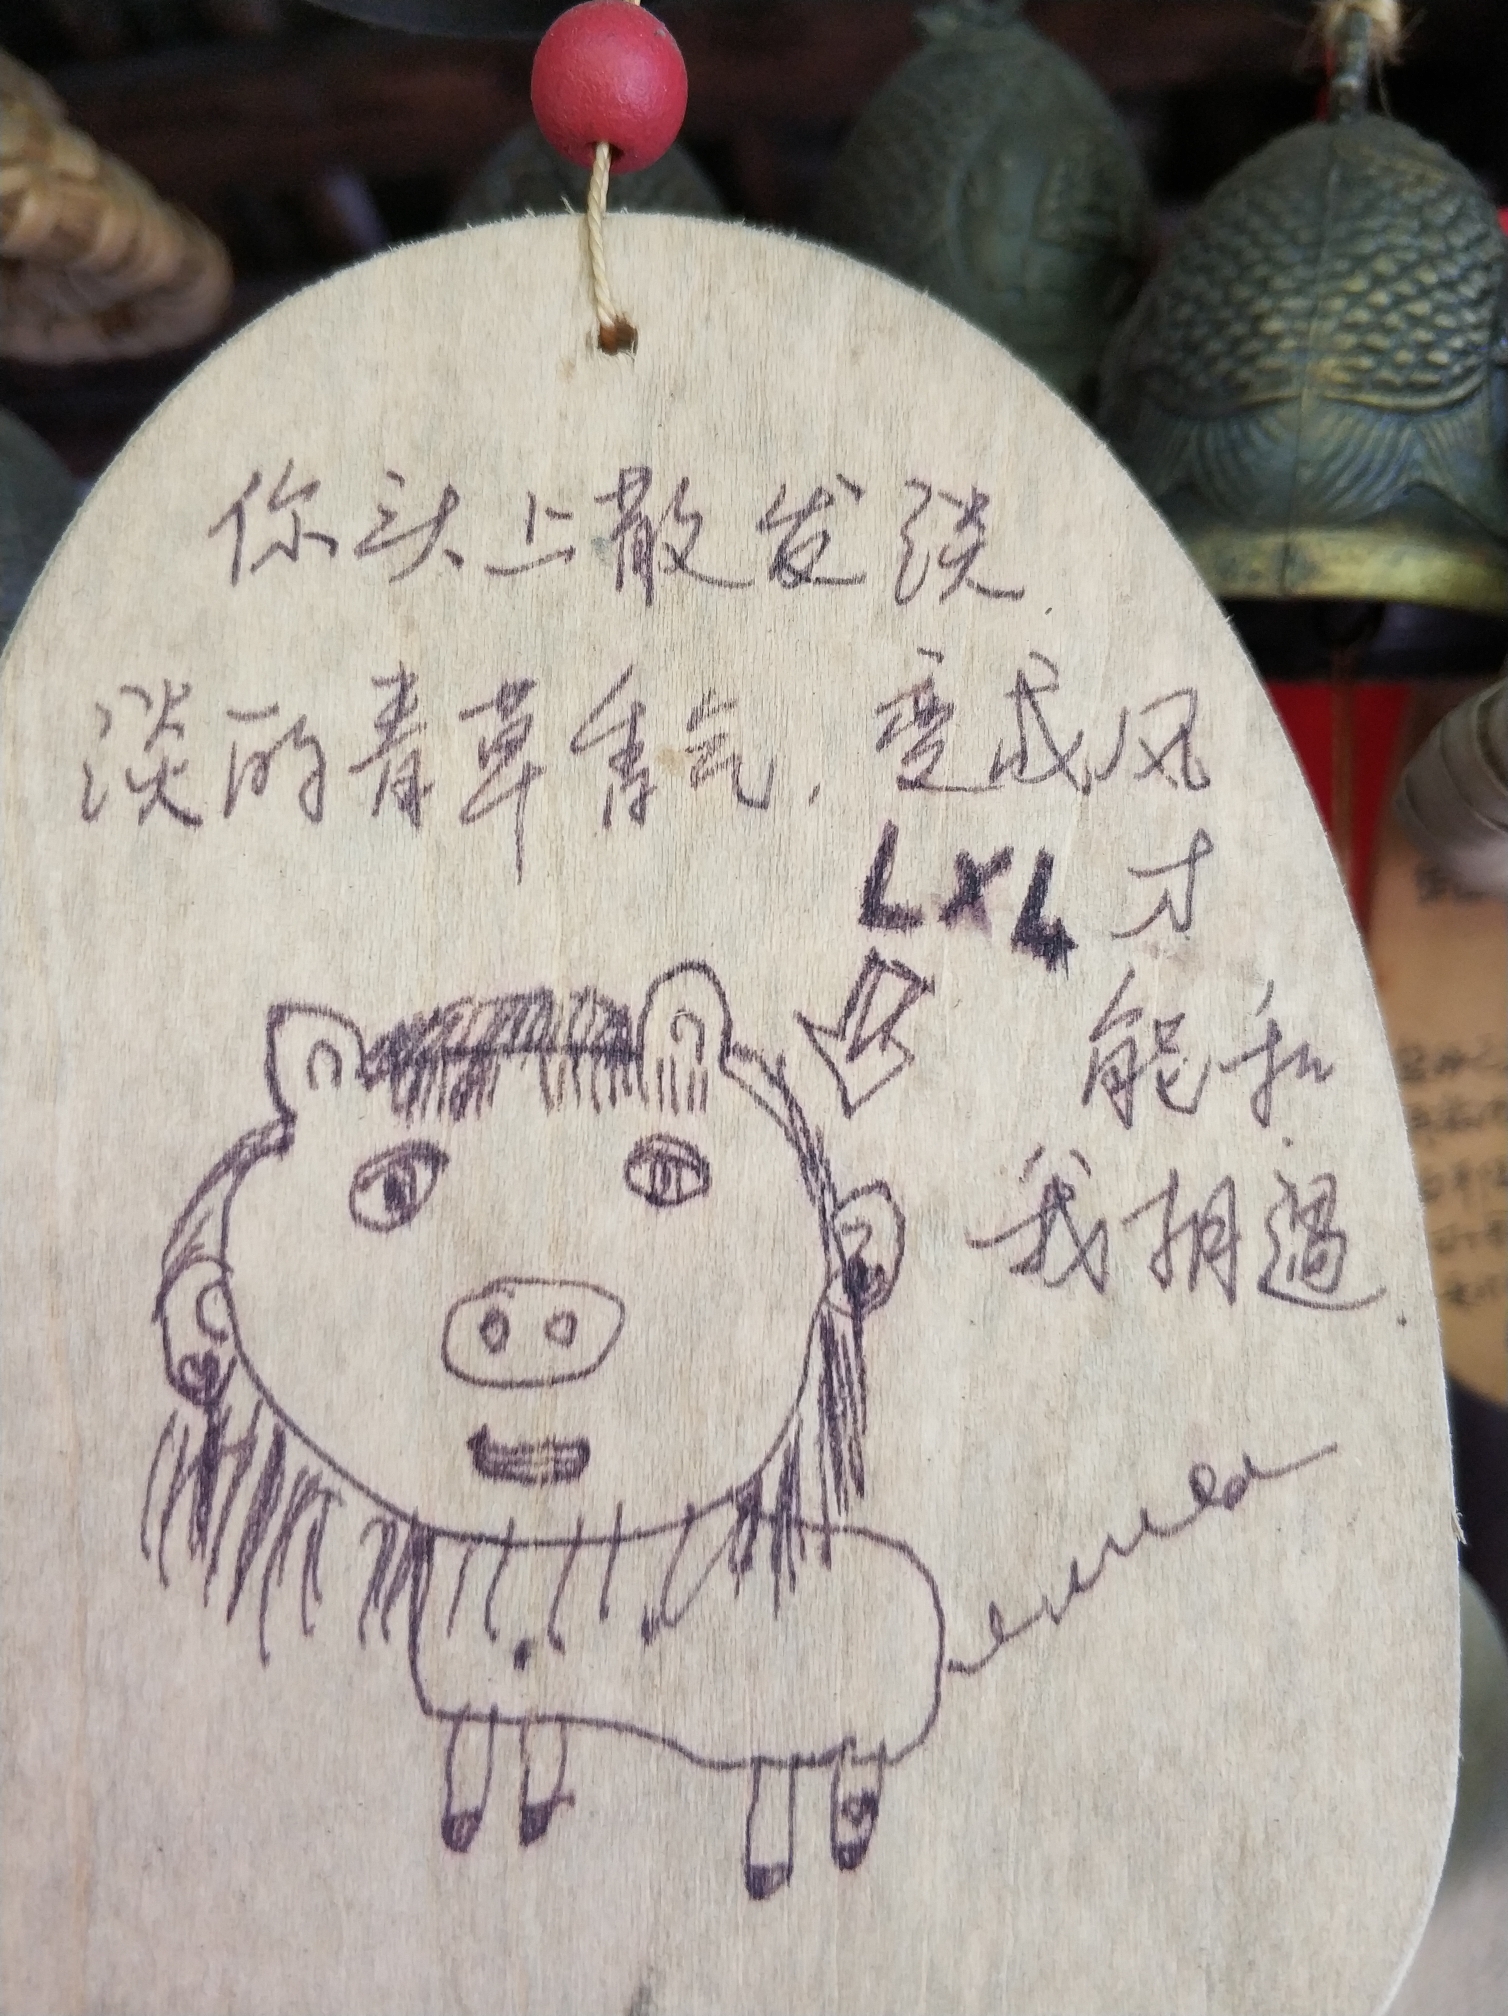 你头上散发淡
淡的青草香气,变成风
LXL 才
能和
我拥遏.